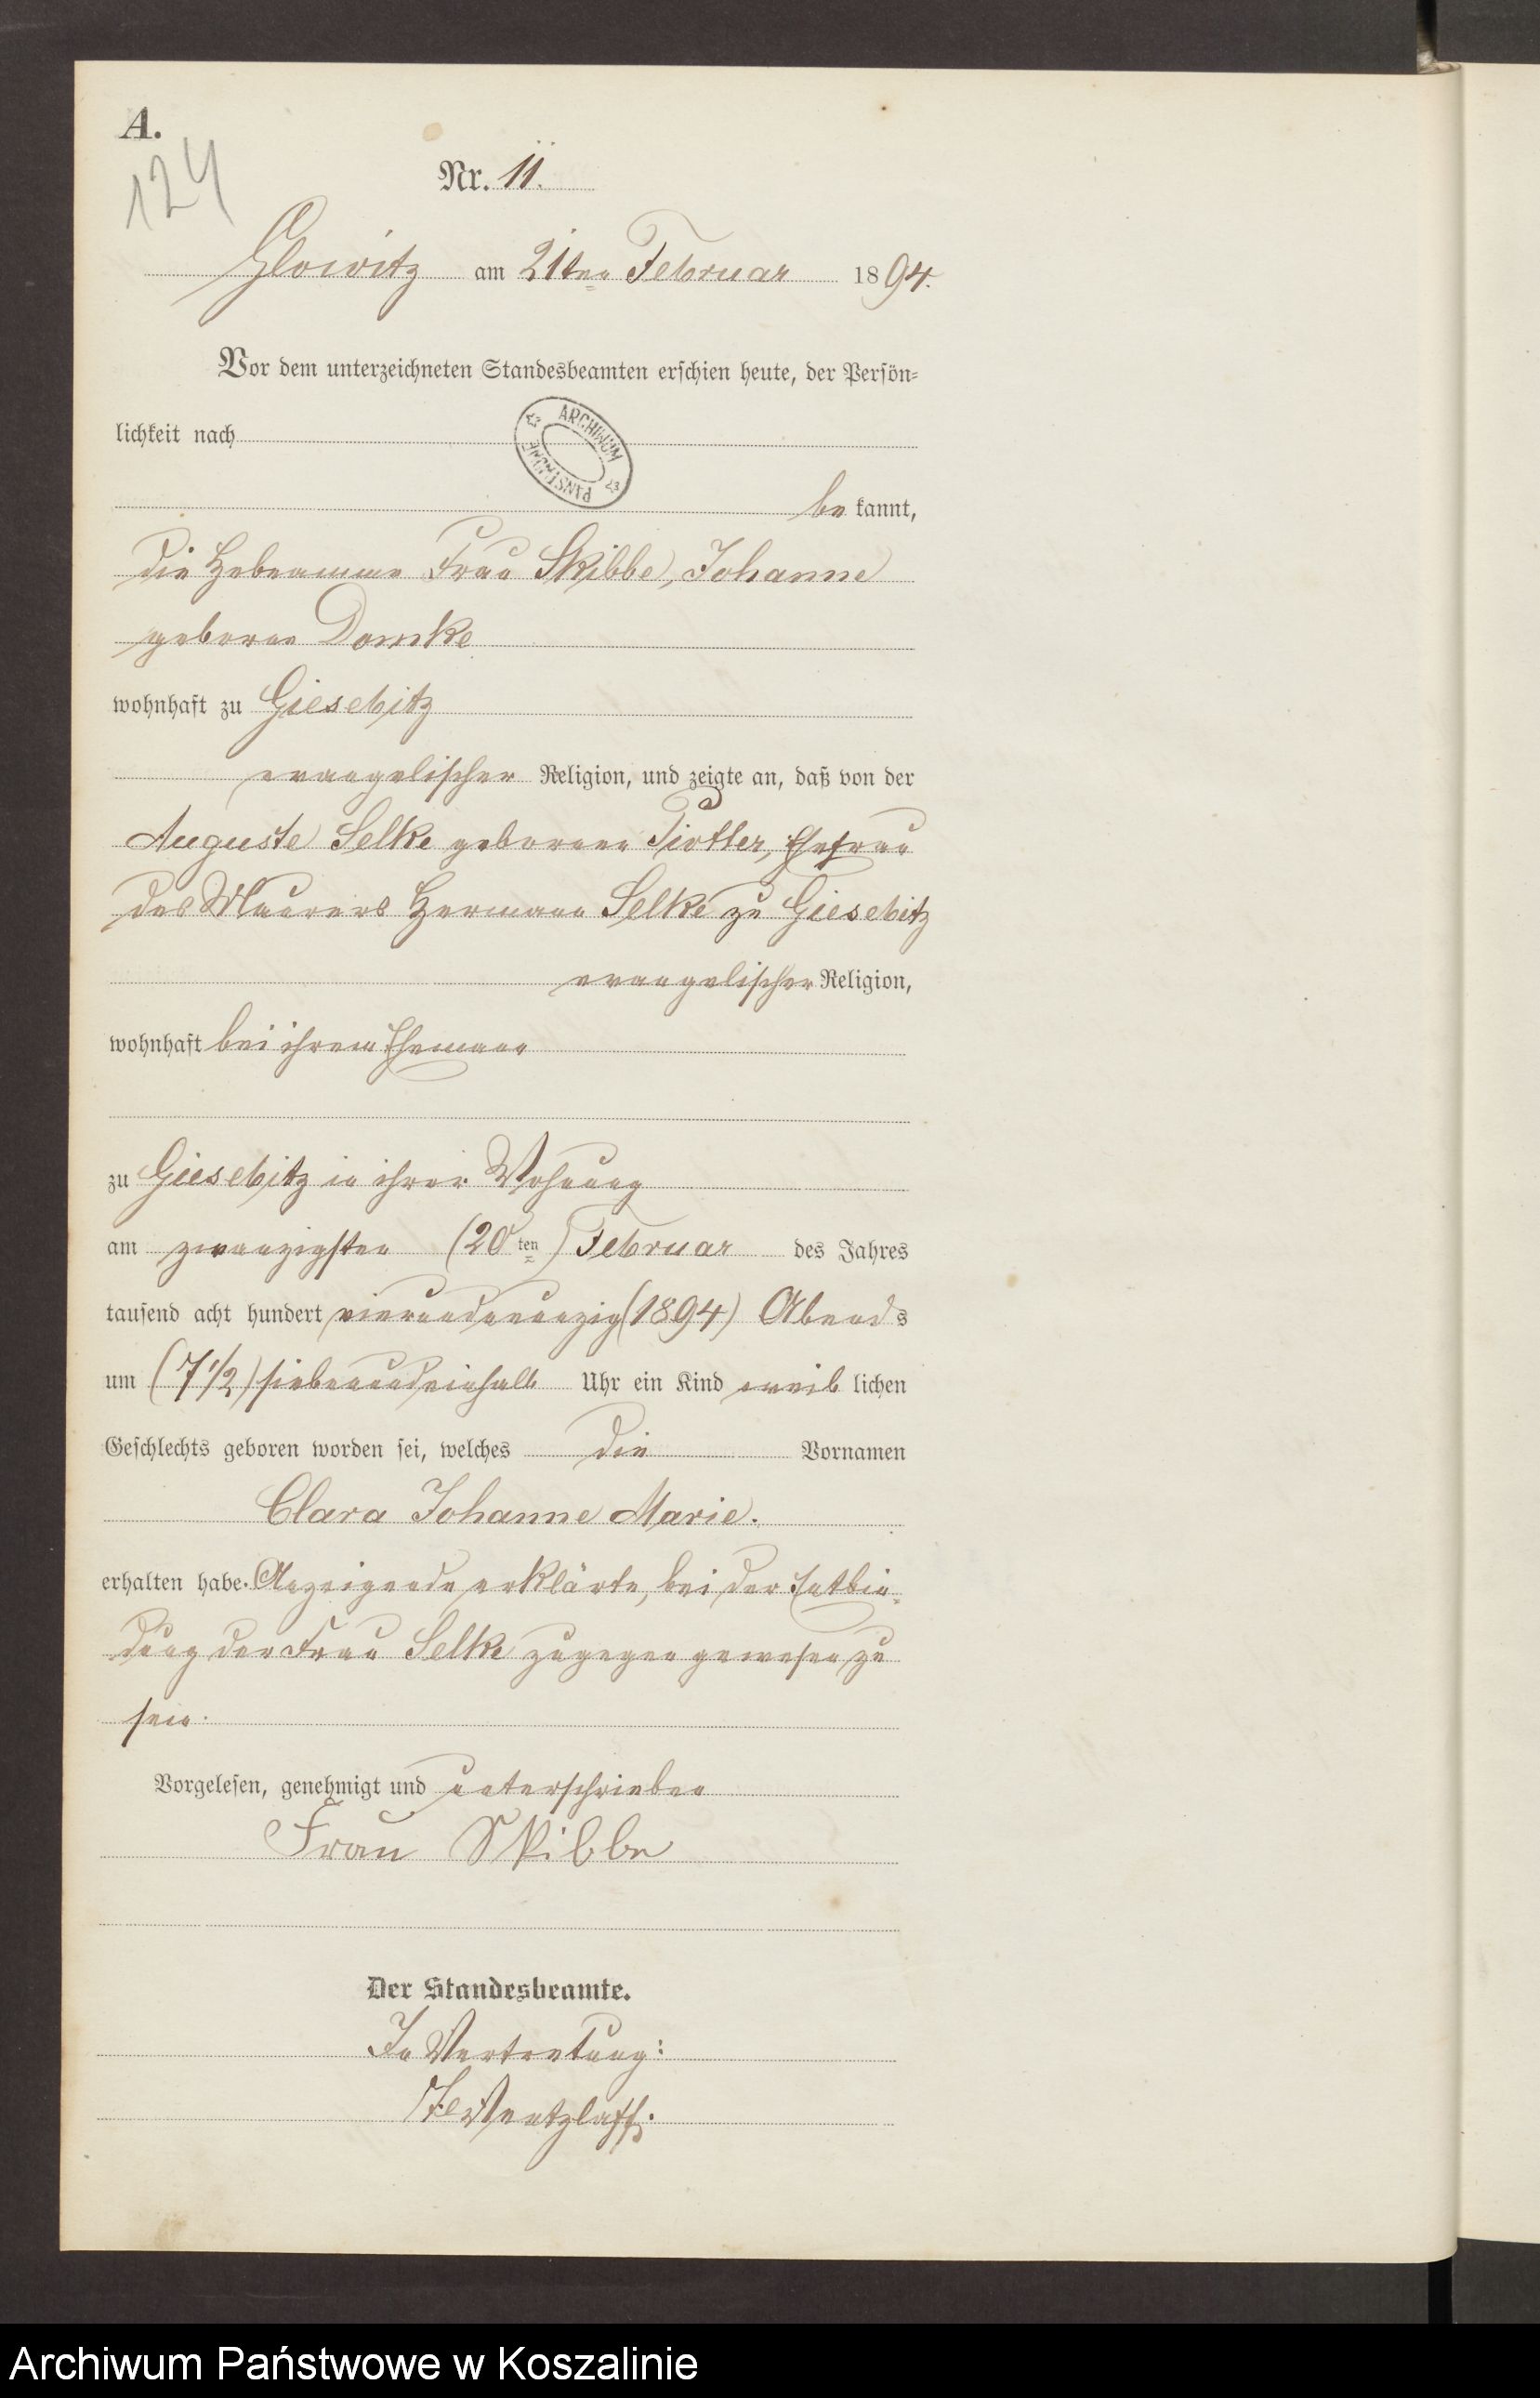 A.
124
Nr. 11.
Glowitz am 21ten Februar 1894.
Vor dem unterzeichneten Standesbeamten erschien heute, der Persön-
lichkeit nach
ARCHIWUM PAŃSTWOWE
be kannt,
die Hebeamme Frau Skibbe, Johanne
geborne Domke
wohnhaft zu Giesebitz
evangelischer Religion, und zeigte an, daß von der
Auguste Selke geborenen Piotter, Ehefrau
des Maurers Hermann Selke zu Giesebitz
evangelischer Religion,
wohnhaft bei ihrem Ehemann
zu Giesebitz in ihrer Wohnung
am zwanzigsten (20ten) Februar des Jahres
tausend acht hundert vierundneunzig (1894) Abends
um (7 1/2) siebenundeinhalb Uhr ein Kind weib lichen
Geschlechts geboren worden sei, welches die Vornamen
Clara Johanne Marie.
erhalten habe. Anzeigende erklärte, bei der Entbin-
dung der Frau Selke zugegen gewesen zu
sein.
Vorgelesen, genehmigt und unterschrieben
Frau Skibbe
Der Standesbeamte.
In Vertretung:
Wentzlaff.
Archiwum Państwowe w Koszalinie